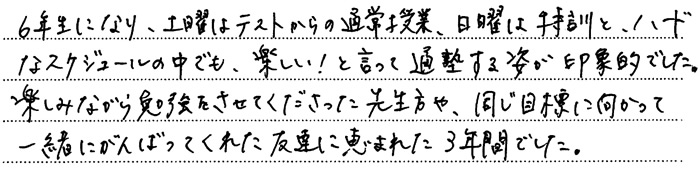 6年生になり、土曜はテストからの通常授業、日曜は特訓と、ハード
なスケジュールの中でも、楽しい！と言って通塾する姿が印象的でした。
楽しみながら勉強をさせてくださった先生方や、同じ目標に向かって
一緒にがんばってくれた友達に恵まれた3年間でした。